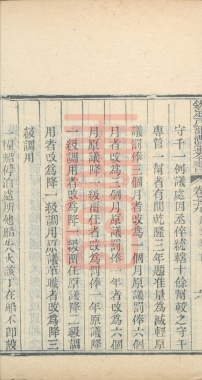 守千一例議處因丞倅統轄十餘幫較之守千
專管一幫者有間乾隆三年題准量為減輕原
議罰俸三個月者改為一個月原議罰俸六個
月者改為三個月原議罰俸一年者改為六個
月原議降一級留任者改為罰俸一年原議降
一級調用者改為降一級留任原議降二級調
用者改為降一級調用原議革職者改為降三
級調用
糧船停泊處所他船失火該丁在船不即救